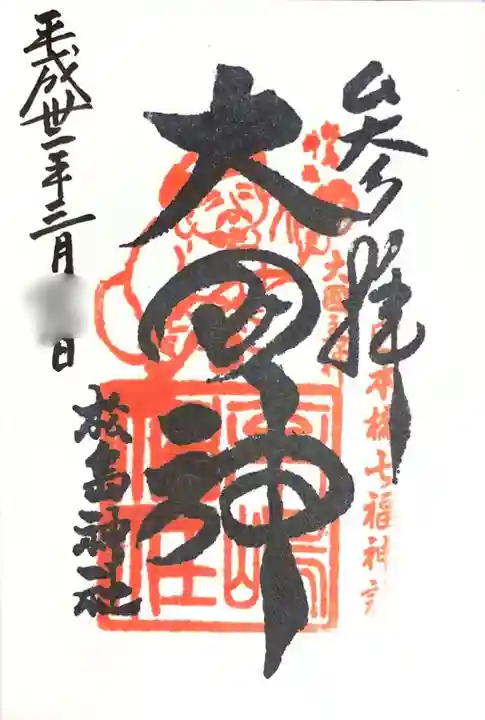 参拝
日本橋七福神詣
大國主神
大国神
松島神社
平成卅一年三月
日